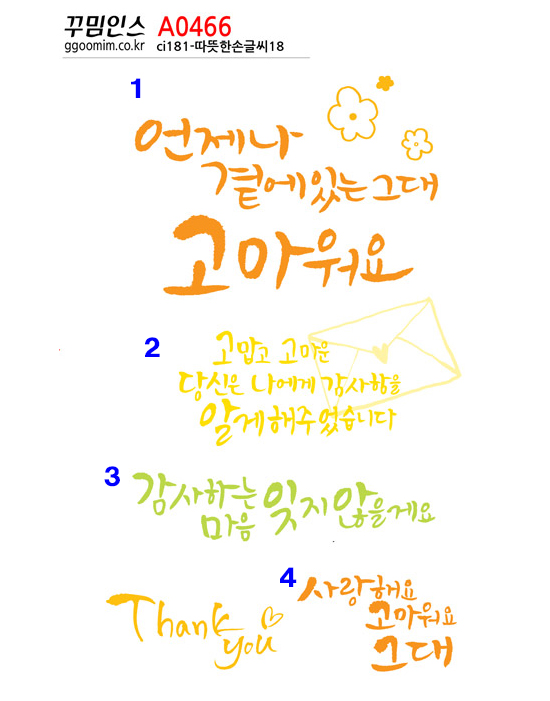 꾸밈인스 A0466
ggoomim.co.kr ci181-따뜻한손글씨18
1
언제나
곁에있는 그대
고마워요
2
고맙고 고마운
당신은 나에게 감사함을
알게해주었습니다
3
감사하는
마음 잊지 않을게요
Thank
you
4
사랑해요
고마워요
그대